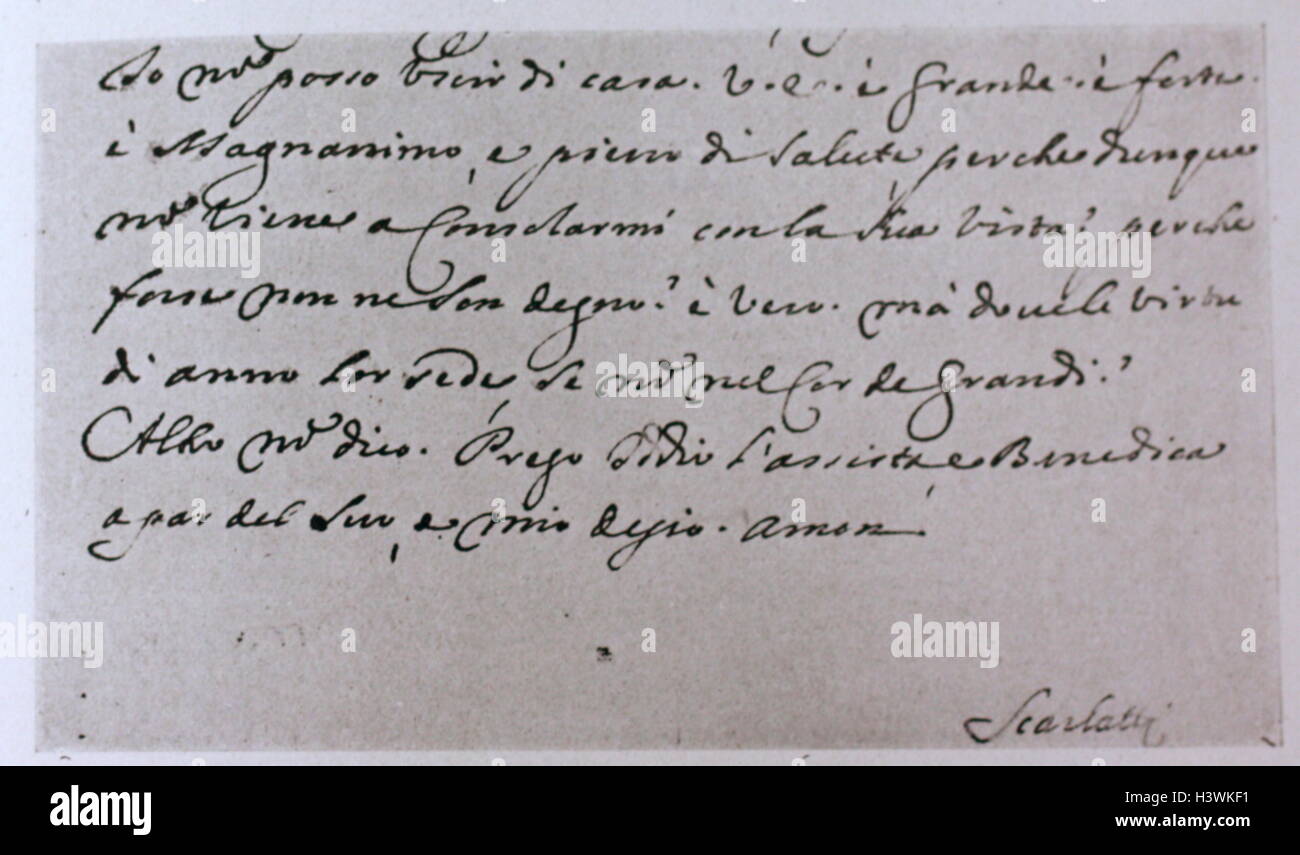 Io nō posso Uscir di casa. V. E. è Grande. è forte.
è Magnanimo, e pieno di Salute, perche dunque
nō Viene a Consolarmi con la Sua Vista? perche
forse non ne Son degno? è Vero. mà dove le virtu
di anno lor sede, se nō nel Cor de Grandi?
Altro nō dico. Prego Iddio l'assista, e Benedica
a par del Suo, e mio desio. amen.
Scarlatti
alamy
a
alamy stock photo
H3WKF1
www.alamy.com